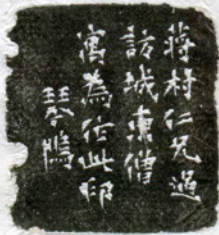 蔣村仁兄過
訪城東僧
寓為作此印
琴隝